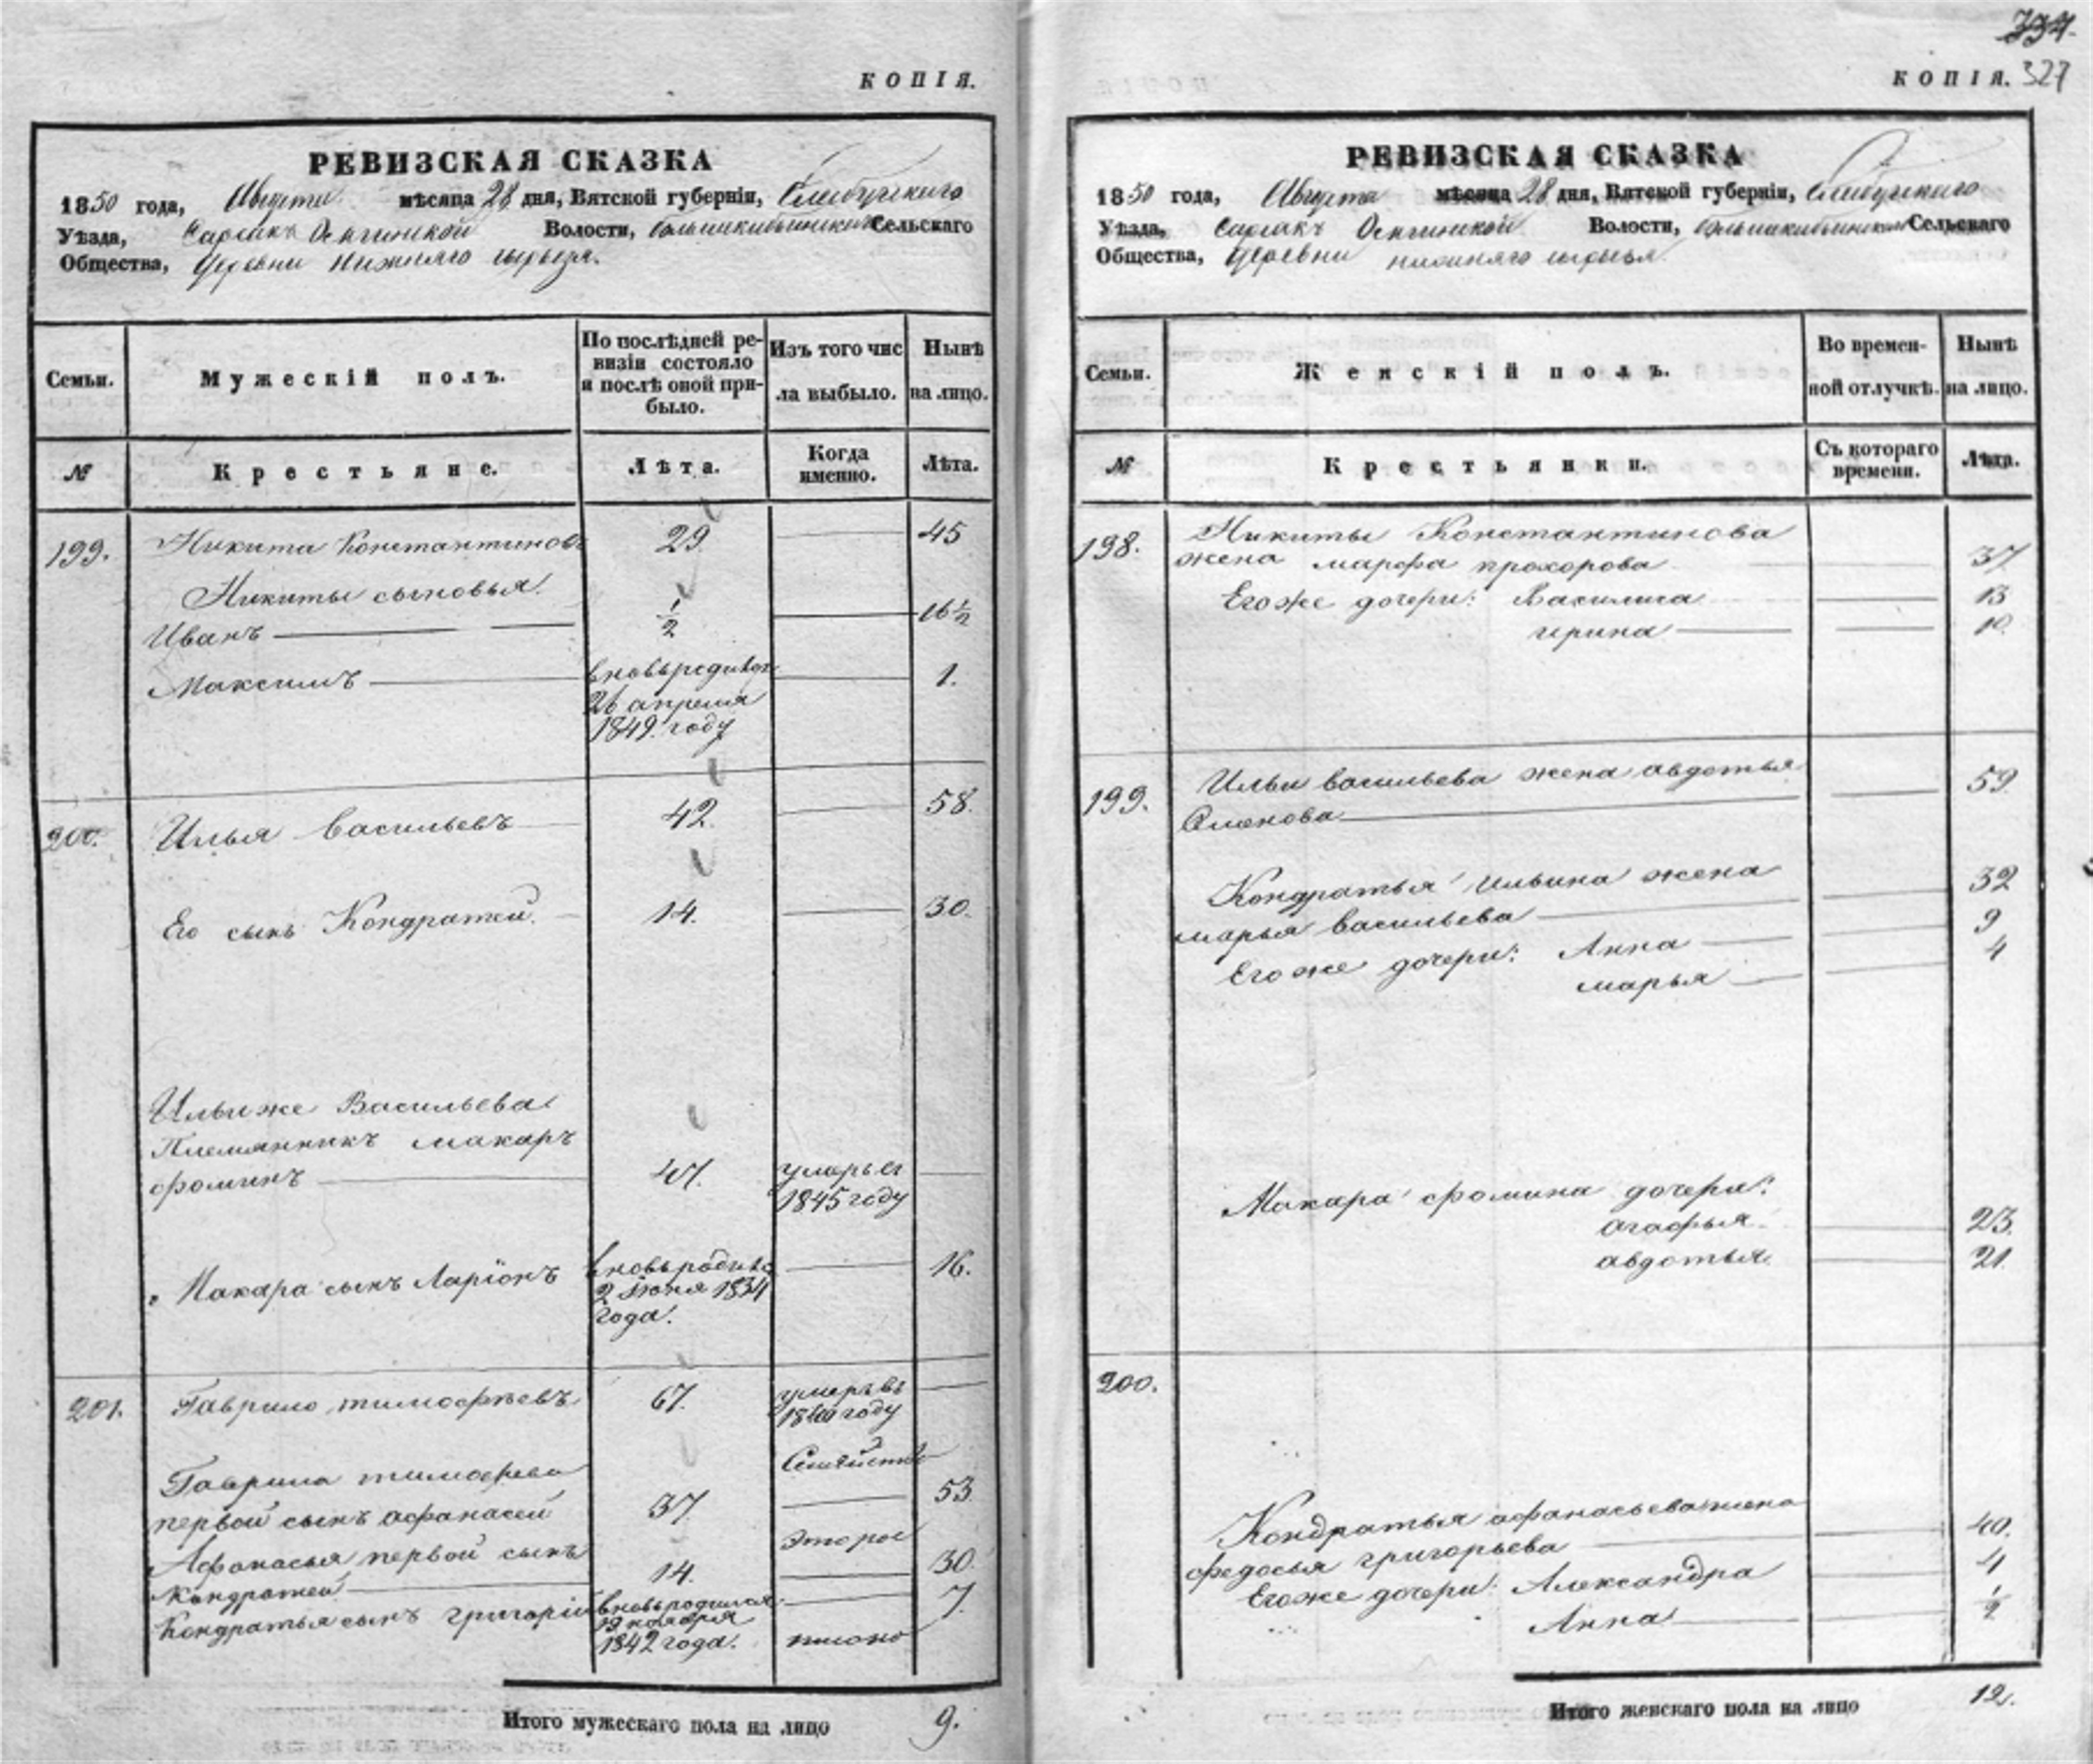 КОПІЯ.
РЕВИЗСКАЯ СКАЗКА
1850 года, Августа мѣсяца 28 дня, Вятской губерніи, Елабужскаго
Уѣзда, Волости, Сельскаго
Общества, Деревни Нижняго
Семьи.
Мужескій полъ.
По послѣдней ре-
визіи состояло
и послѣ оной при-
было.
Изъ того чис
ла выбыло.
Нынѣ
на лицо.
№
Крестьяне.
Лѣта.
Когда
именно.
Лѣта.
199. Никита Константиновъ 29 45
Никиты сыновья.
Иванъ 1/2 16 1/2
Максимъ 1.
26 апреля
1849. году
200. Илья Васильевъ 42. 58.
Его сынъ Кондратей. 14. 30.
Ильи же Васильева
Племянникъ макаръ
фоминъ 47. умеръ въ
1845 году
Макара сынъ Ларіонъ 16.
2 Июня 1834
года.
201. Гаврило тимофѣевъ 67. умеръ въ
году
Гаврила тимофеева
первой сынъ афанасей 37. 53
Афанасья первой сынъ
Кондратей 14. 30
Кондратья сынъ григорій вновь родился 7.
19 ноября
1842 года.
Итого мужескаго пола на лицо 9.
334.
КОПІЯ. 327
РЕВИЗСКАЯ СКАЗКА
1850 года, Августа мѣсяца 28 дня, Вятской губерніи, Елабужскаго
Уѣзда, Волости, Сельскаго
Общества, Деревни нижняго
Семьи.
Женскій полъ.
Во времен-
ной отлучкѣ.
Нынѣ
на лицо.
№
Крестьянки.
Съ котораго
времени.
Лѣта.
198. Никиты Константинова
жена марфа прохорова 37
Его же дочери: Василиса 13
ирина 10.
199. Ильи васильева жена авдотья 59
Семенова
Кондратья Ильина жена 32
марья васильева
Его же дочери: Анна 9
марья 4
Макара фомина дочери:
агафья 23.
авдотья. 21
200.
Кондратья афанасьева жена
федосья григорьева 40.
Его же дочери: Александра 4
Анна 1/2
Итого женскаго пола на лицо 12.